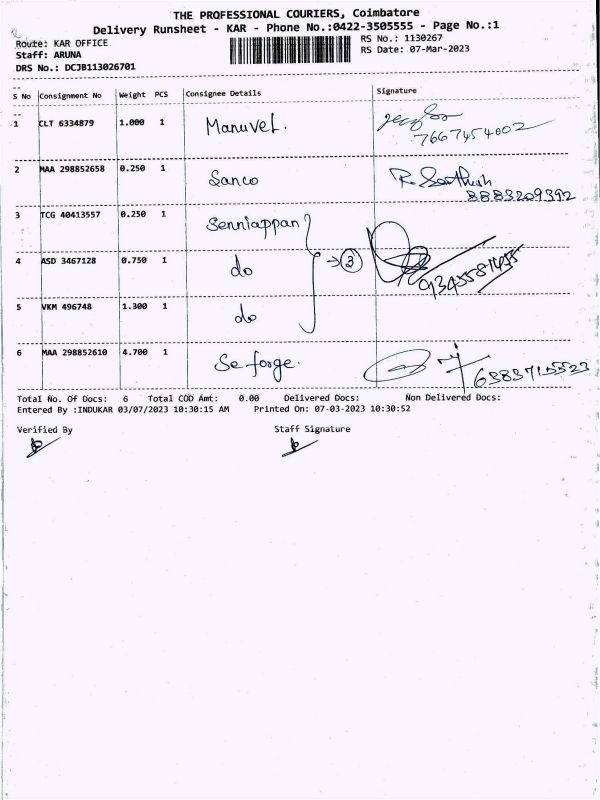 THE PROFESSIONAL COURIERS, Coimbatore
Delivery Runsheet - KAR - Phone No.:0422-3505555 - Page No.:1
Route: KAR OFFICE
Staff: ARUNA
DRS No.: DCJB113026701
RS No.: 1130267
RS Date: 07-Mar-2023
S No Consignment No Weight PCS Consignee Details Signature
1 CLT 6334879 1.000 1 Manuvel.
7667454002
2 MAA 298852658 0.250 1 Sanco R. Sathish
8883209392
3 TCG 40413557 0.250 1 Senniappan
4 ASD 3467128 0.750 1 do → 3
5 VKM 496748 1.300 1 do
6 MAA 298852610 4.700 1 Se forge.
Total No. Of Docs: 6 Total COD Amt: 0.00 Delivered Docs: Non Delivered Docs:
Entered By :INDUKAR 03/07/2023 10:30:15 AM Printed On: 07-03-2023 10:30:52
Verified By Staff Signature